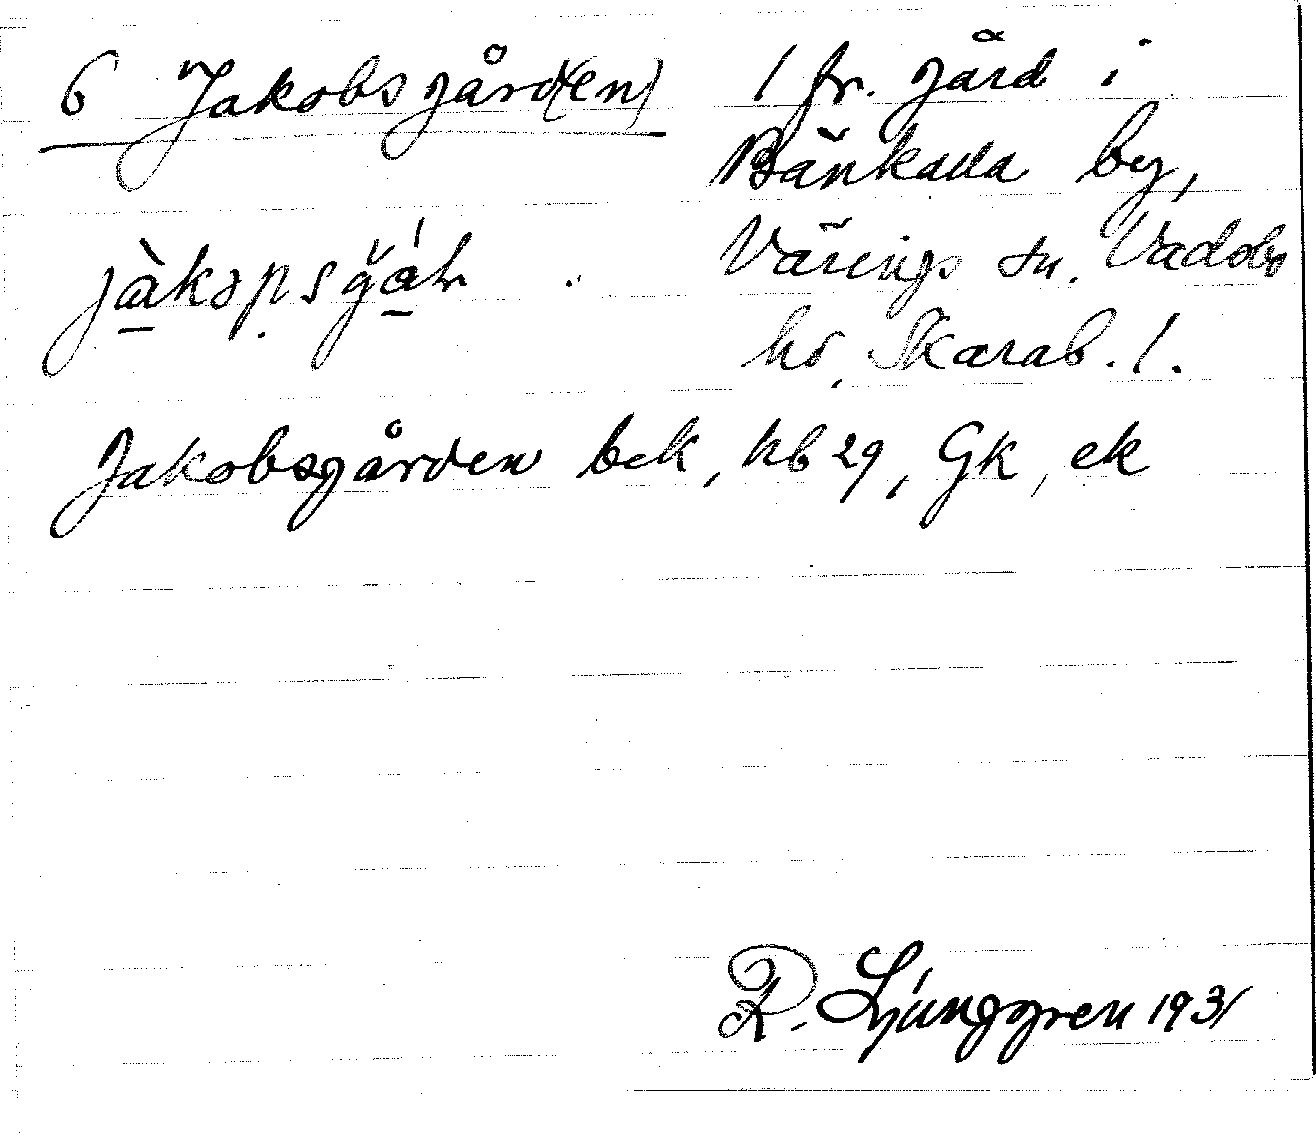 6 Jakobsgård(en)
1 fr. gård i
Bänkada by,
Värings sn. Vadsbo
hd, Skarab. l.
Jakobsgården bek, hb 29, Gk, ek
R. Ljunggren 1931